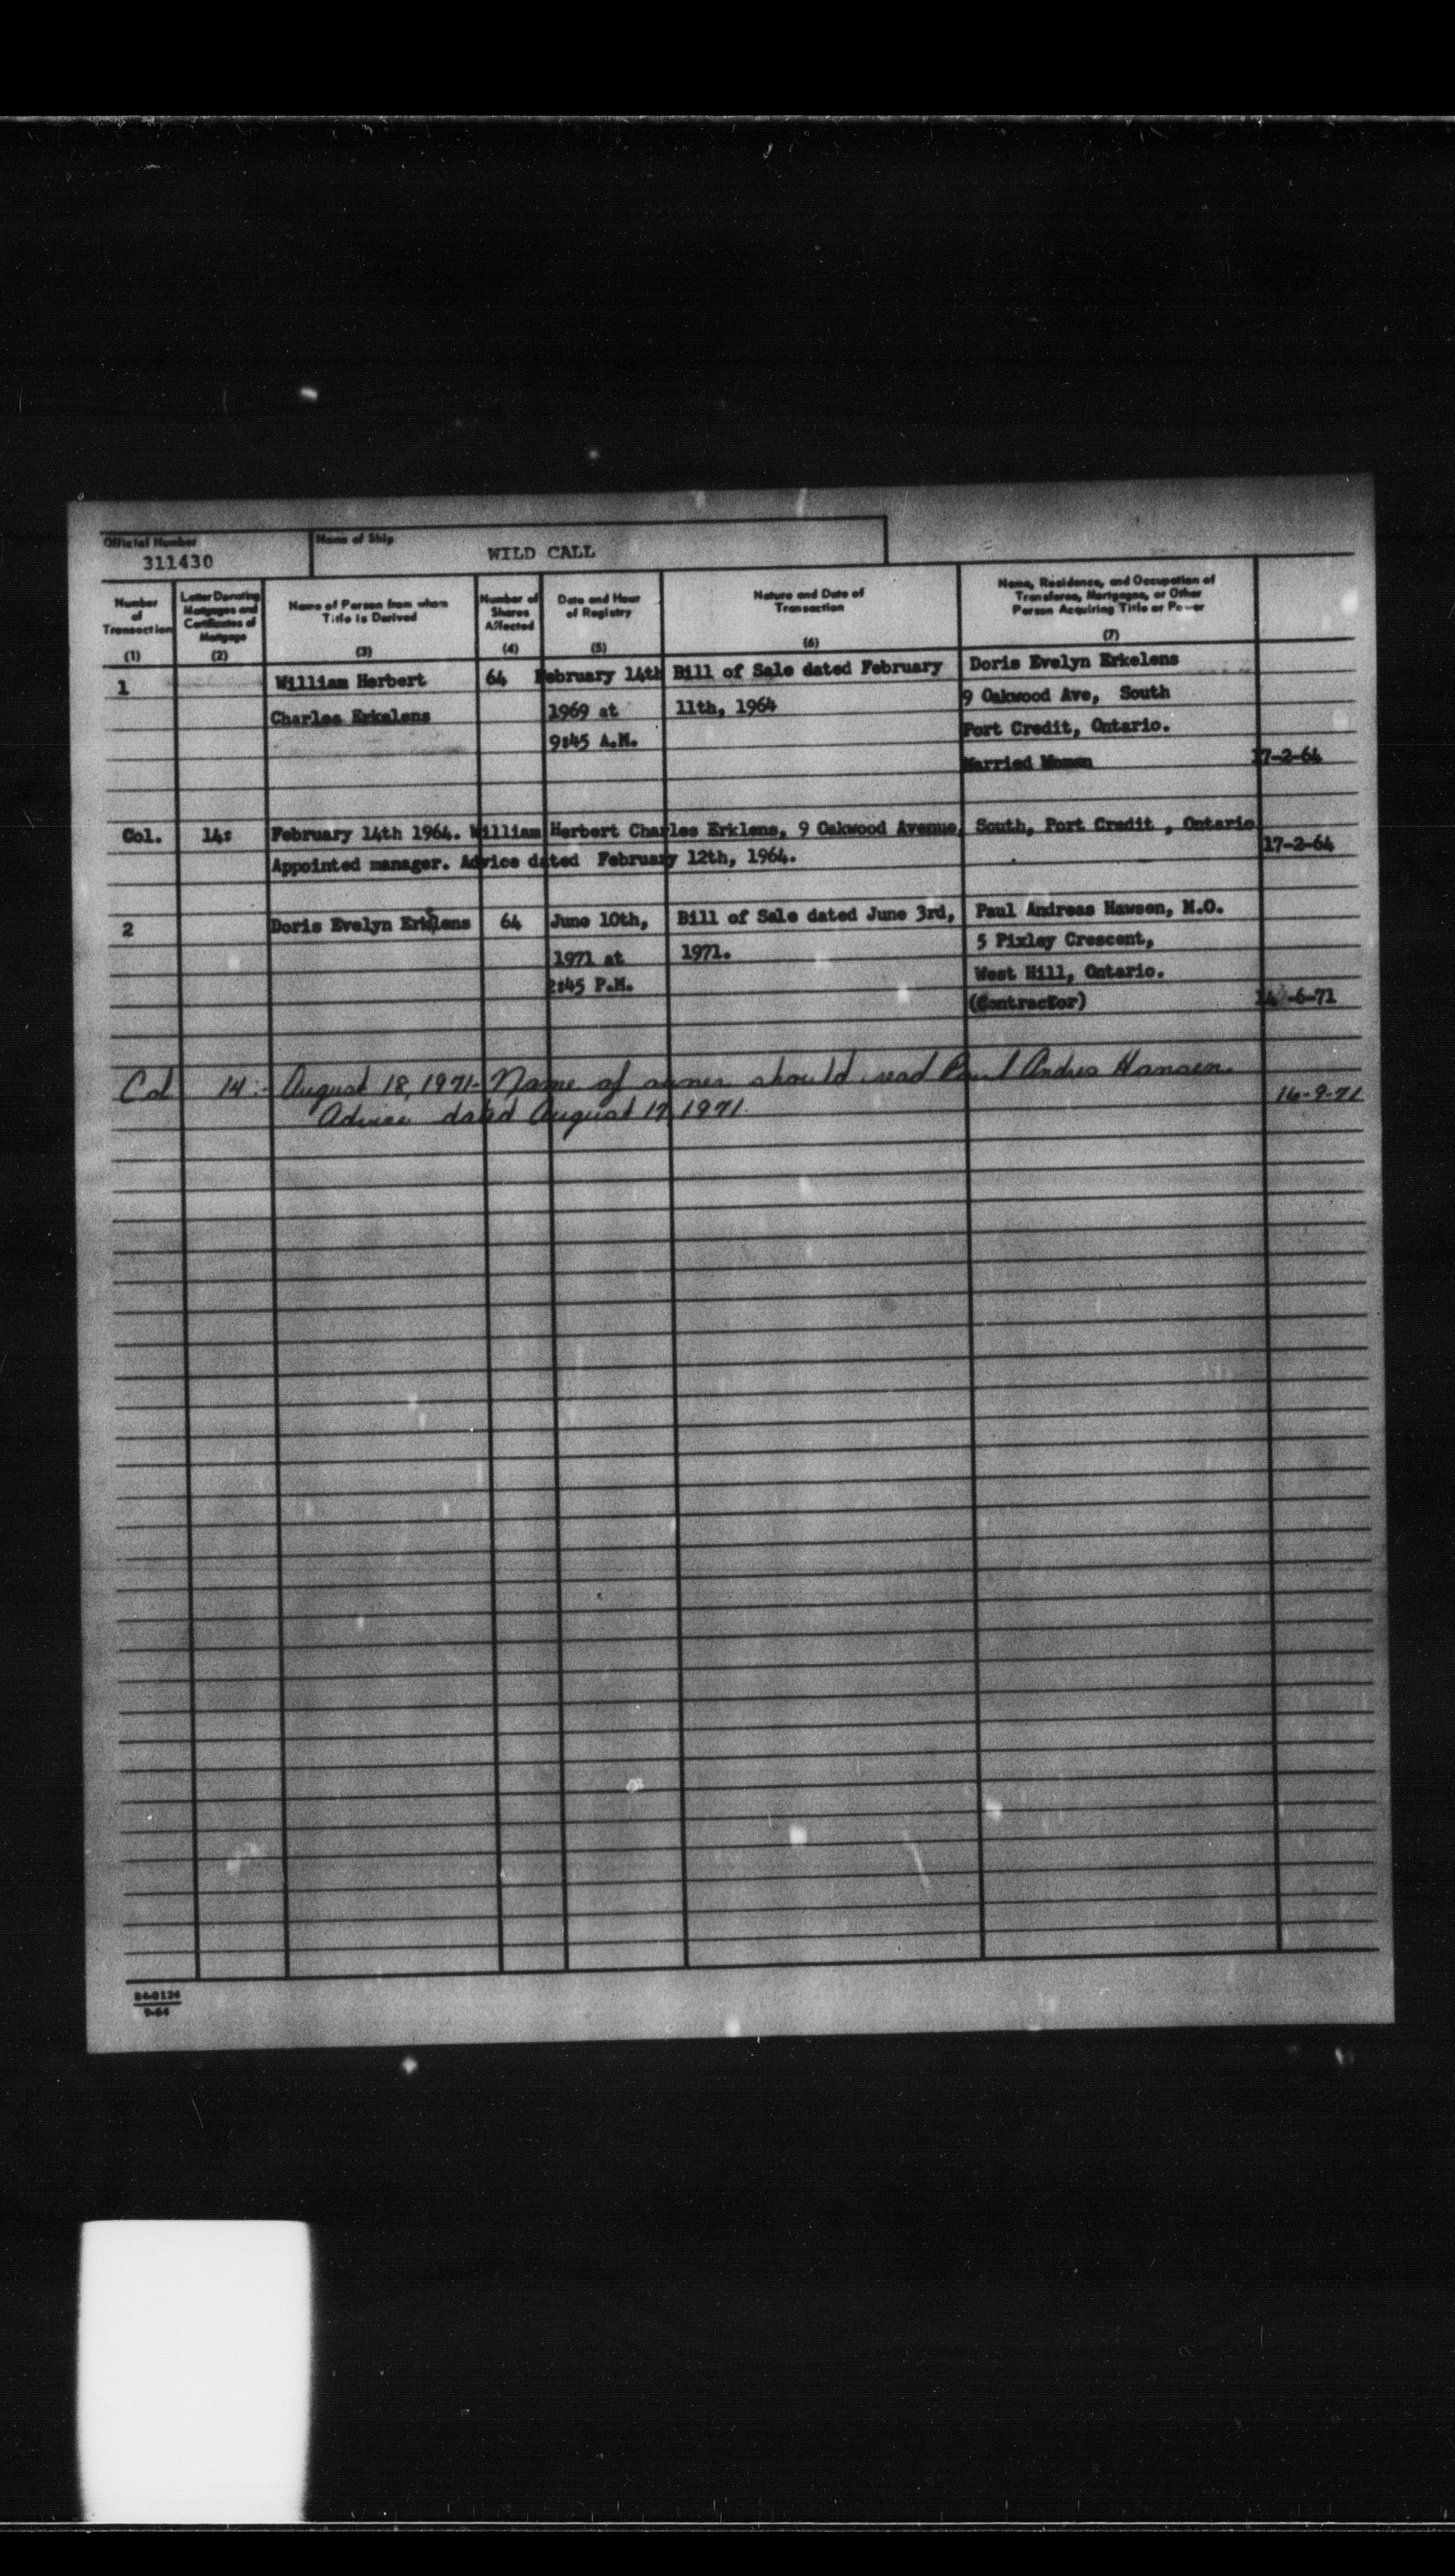 Official Number
311430
Name of Ship
WILD CALL
Number of Transaction
(1)
Letter Denoting Mortgages and Certificates of Mortgage
(2)
Name of Person from whom Title is Derived
(3)
Number of Shares Affected
(4)
Date and Hour of Registry
(5)
Nature and Date of Transaction
(6)
Name, Residence, and Occupation of Transferee, Mortgagee, or Other Person Acquiring Title or Power
(7)
1 William Herbert 64 February 14th Bill of Sale dated February Doris Evelyn Erkelens
Charles Erkelens 1969 at 11th, 1964 9 Oakwood Ave, South
9:45 A.M. Port Credit, Ontario.
Married Woman 17-2-64
Col. 14: February 14th 1964. William Herbert Charles Erklens, 9 Oakwood Avenue, South, Port Credit , Ontario
Appointed manager. Advice dated February 12th, 1964. 17-2-64
2 Doris Evelyn Erkelens 64 June 10th, Bill of Sale dated June 3rd, Paul Andreas Hawsen, M.O.
1971 at 1971. 5 Pixley Crescent,
2:45 P.M. West Hill, Ontario.
(Contractor) 14 -6-71
Col 14:- August 18, 1971- Name of owner should read Paul Andres Hansen.
Advice dated August 17, 1971. 16-9-71
84-0124
9-64